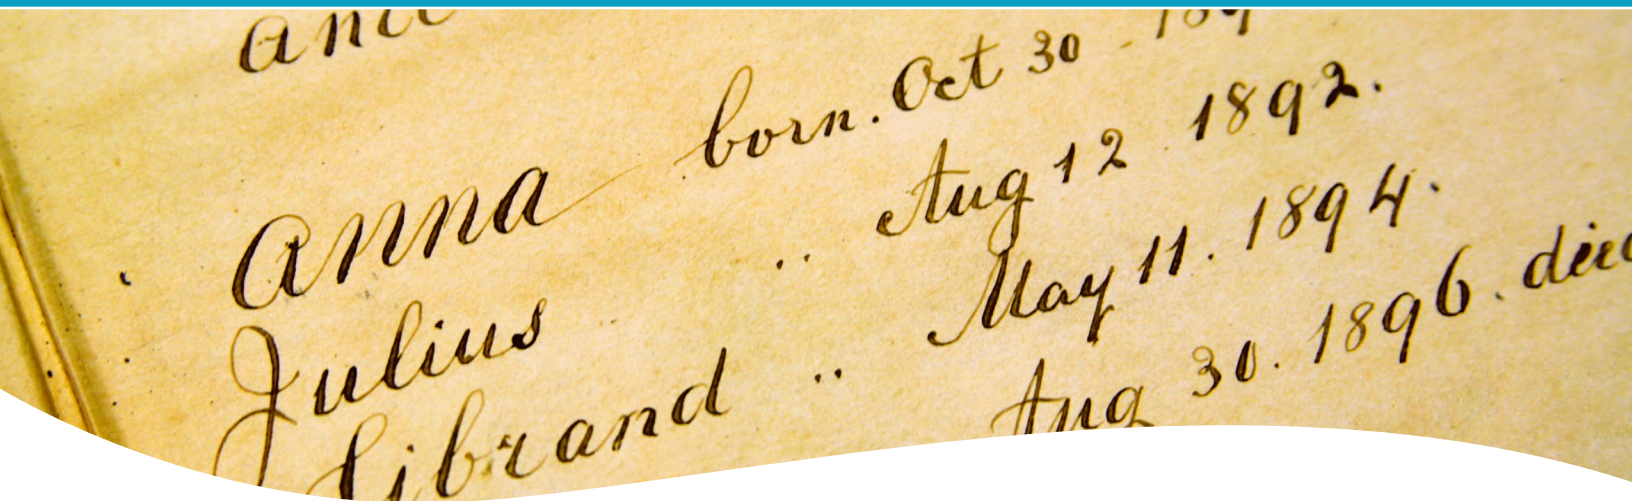 Anna born. Oct 30 - 189
Julius .. Aug 12 1892.
.. May 11. 1894.
Aug 30. 1896. died